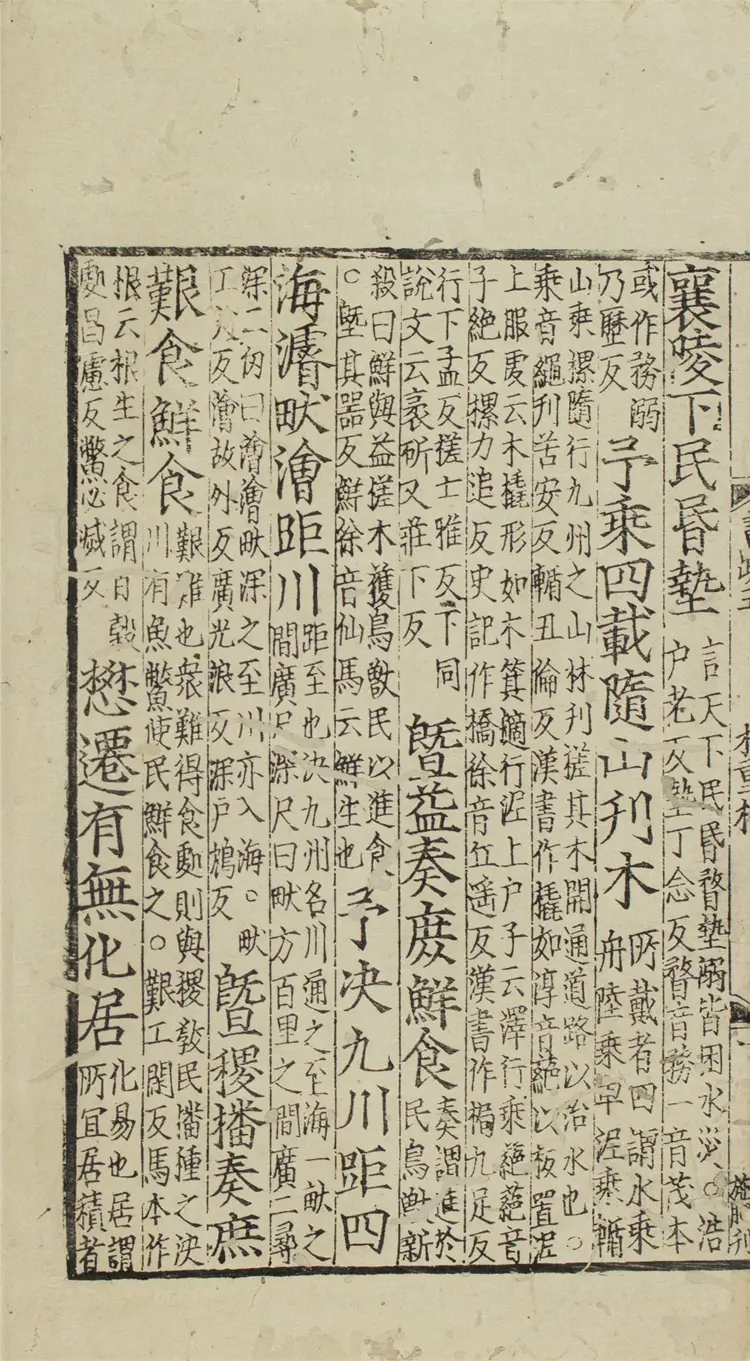 襄陵下民昏墊
言天下民昏瞀墊溺皆困水災○浩
户老反墊丁念反瞀音務一音茂本
或作務溺
乃歷反
予乘四載隨山刋木
所載者四謂水乘
舟陸乘車泥乘輴
山乘摞隨行九州之山林刋槎其木開通道路以治水也○
乘音繩刋苦安反輴丑倫反漢書作橇如淳音蕝以板置泥
上服虔云木橇形如木箕擿行泥上户子云澤行乘蕝蕝音
子絶反摞力追反史記作橋徐音丘遥反漢書作梮九足反
行下孟反槎士雅反下同
說文云衺斫又莊下反
曁益奏庶鮮食
奏謂進於
民鳥獸新
殺曰鮮與益槎木獲鳥獸民以進食
○曁其器反鮮徐音仙馬云鮮生也
予决九川距四
海濬畎澮距川
距至也决九州名川通之至海一畎之
間廣尺深尺曰畎方百里之間廣二尋
深二仞曰澮澮畎深之至川亦入海○畎
工犬反澮故外反廣光浪反深户鴆反
曁稷播奏庶
艱食鮮食
艱難也衆難得食處則與稷教民播種之决
川有魚鼈使民鮮食之○艱工閑反馬本作
根云根生之食謂百穀
處昌慮反鼈必滅反
懋遷有無化居
化易也居謂
所宜居積者